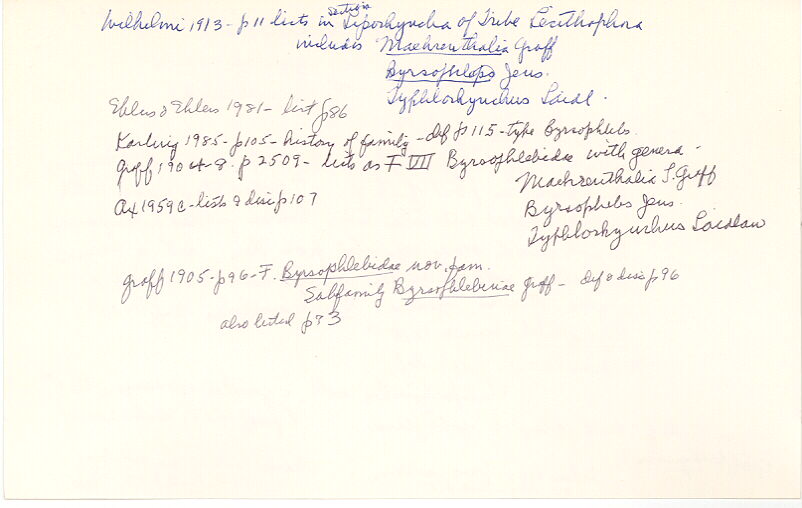 Wilhelmi 1913 - p11 lists in section Liporhyncha of Tribe Lecithophora
includes Maehrenthalia Graff
Byrsophleps Jens.
Typhlorhynchus Laidl.
Ehlers & Ehlers 1981 - list p86
Karling 1985 - p105 - history of family - def p115 - type Byrsophlebs.
Graff 1904-8 - p 2509 - lists as F VII Byrsophlebidae with genera -
Maehrenthalia L. Graff
Byrsophlebs Jens.
Typhlorhynchus Laidlaw
Ax 1959c - lists & disc p107
Graff 1905 - p96 - F. Byrsophlebidae nov. fam.
Subfamily Byrsophlebinae Graff - def & disc p96
also listed p33